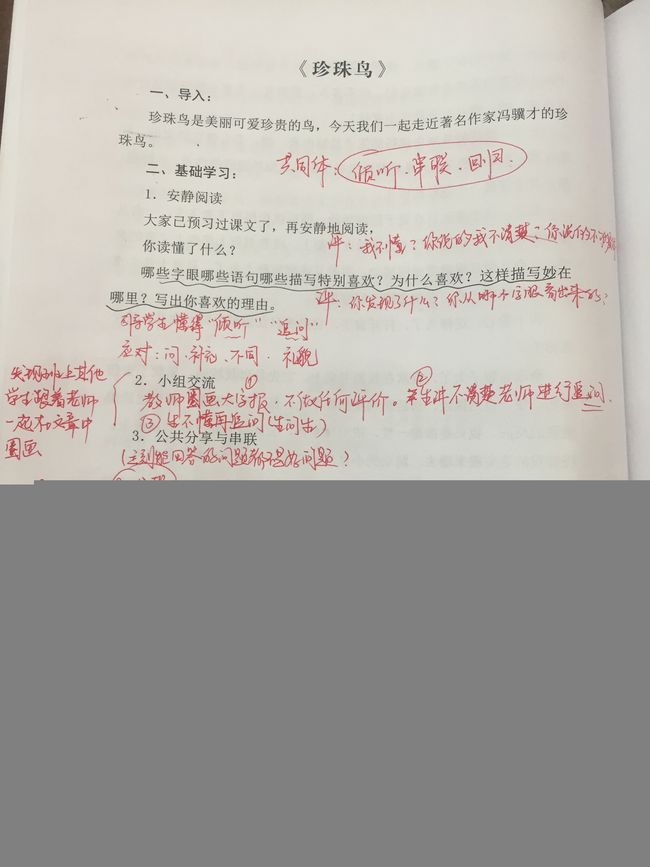 《珍珠鸟》
一、导入：
珍珠鸟是美丽可爱珍贵的鸟，今天我们一起走近著名作家冯骥才的珍
珠鸟。
共同体：倾听．串联．回归．
二、基础学习：
1．安静阅读
大家已预习过课文了，再安静地阅读，
你读懂了什么？
评：我不懂？你说的我不清楚？你说的不
哪些字眼哪些语句哪些描写特别喜欢？为什么喜欢？这样描写妙在
哪里？写出你喜欢的理由。
评：你发现了什么？你从哪个字眼看出来的？
学生懂得“倾听”“追问”
应对：问．补充．不同．礼貌
2．小组交流 ①
教师圈画大字报，不做任何评价。
② 生评不清楚老师进行追问．
③ 生不懂再追问（生问生）
上其他
学生跟着老师
一起在文章中
圈画
3．公共分享与串联
能回答的问题都不是好问题？